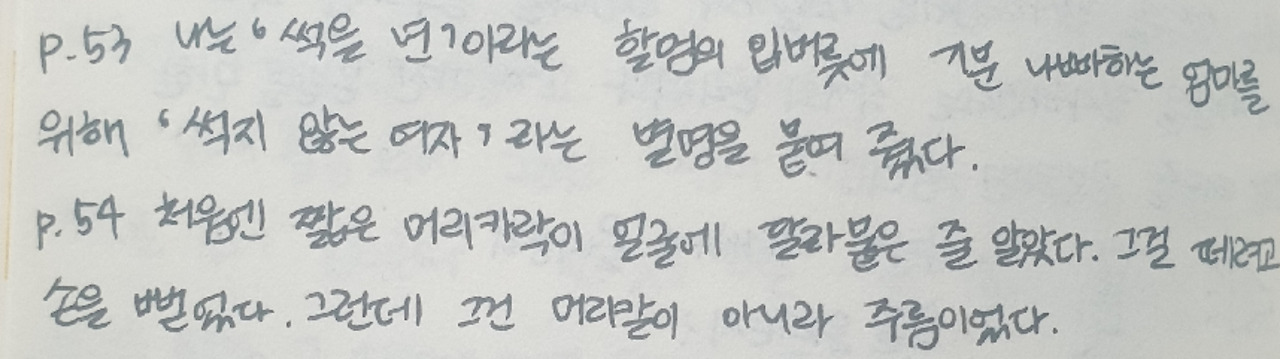 p.53 나는 '썩을 년'이라는 할멈의 입버릇에 기분 나빠하는 엄마를
위해 '썩지 않는 여자'라는 별명을 붙여 줬다.
p.54 처음엔 짧은 머리카락이 얼굴에 달라붙은 줄 알았다. 그걸 떼려고
손을 뻗었다. 그런데 그건 머리칼이 아니라 주름이었다.